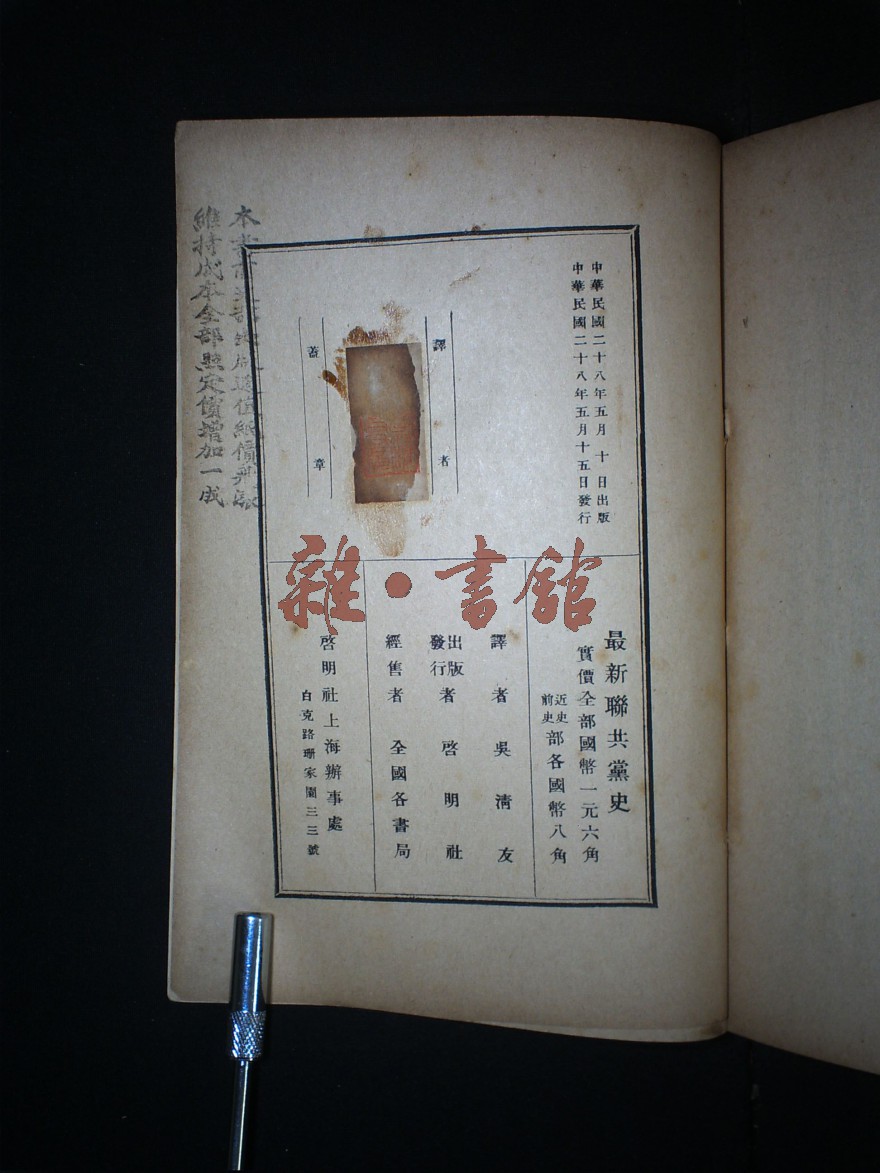 中華民國二十八年五月十日出版
中華民國二十八年五月十五日發行
譯者
蓋章
最新聯共黨史
實價全部國幣一元六角
近史
前史
部各國幣八角
譯者 吳清友
出版
發行
者 啓明社
經售者 全國各書局
啓明社上海辦事處
白克路珊家園三三號
本書
值紙價飛漲
維持成本全部照定價增加一成
雜·書館